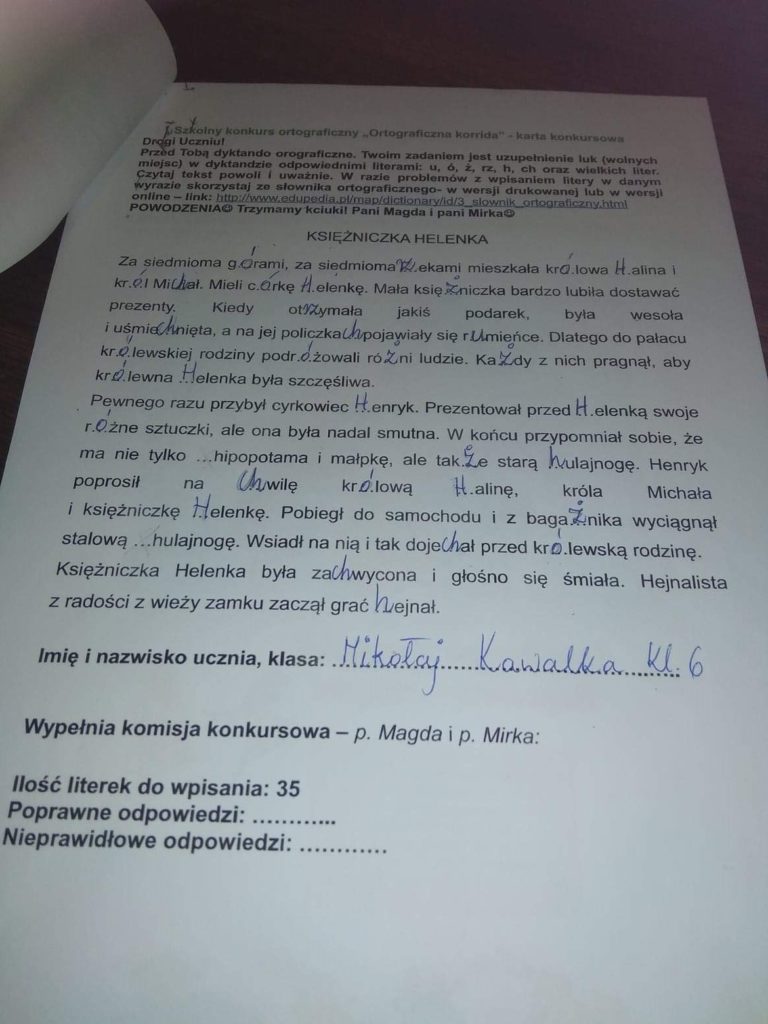 I Szkolny konkurs ortograficzny „Ortograficzna korrida" - karta konkursowa
Drogi Uczniu!
Przed Tobą dyktando orograficzne. Twoim zadaniem jest uzupełnienie luk (wolnych
miejsc) w dyktandzie odpowiednimi literami: u, ó, ż, rz, h, ch oraz wielkich liter.
Czytaj tekst powoli i uważnie. W razie problemów z wpisaniem litery w danym
wyrazie skorzystaj ze słownika ortograficznego- w wersji drukowanej lub w wersji
online – link: http://www.edupedia.pl/map/dictionary/id/3_slownik_ortograficzny.html
POWODZENIA☺ Trzymamy kciuki! Pani Magda i pani Mirka☺
KSIĘŻNICZKA HELENKA
Za siedmioma g.órami, za siedmioma rzekami mieszkała kró.lowa H.alina i
kr.ó.l Michał. Mieli c.órkę H.elenkę. Mała księżniczka bardzo lubiła dostawać
prezenty. Kiedy otrzymała jakiś podarek, była wesoła
i uśmiechnięta, a na jej policzkach pojawiały się rumieńce. Dlatego do pałacu
kr.ó.lewskiej rodziny podr.ó.żowali różni ludzie. Każdy z nich pragnął, aby
kró.lewna .H.elenka była szczęśliwa.
Pewnego razu przybył cyrkowiec H.enryk. Prezentował przed H.elenką swoje
r.ó.żne sztuczki, ale ona była nadal smutna. W końcu przypomniał sobie, że
ma nie tylko ...hipopotama i małpkę, ale tak.że starą hulajnogę. Henryk
poprosił na chwilę kró.lową H.alinę, króla Michała
i księżniczkę Helenkę. Pobiegł do samochodu i z bagażnika wyciągnął
stalową ...hulajnogę. Wsiadł na nią i tak dojechał przed kró.lewską rodzinę.
Księżniczka Helenka była zachwycona i głośno się śmiała. Hejnalista
z radości z wieży zamku zaczął grać hejnał.
Imię i nazwisko ucznia, klasa: Mikołaj Kawalka kl. 6
Wypełnia komisja konkursowa – p. Magda i p. Mirka:
Ilość literek do wpisania: 35
Poprawne odpowiedzi: ............
Nieprawidłowe odpowiedzi: ............